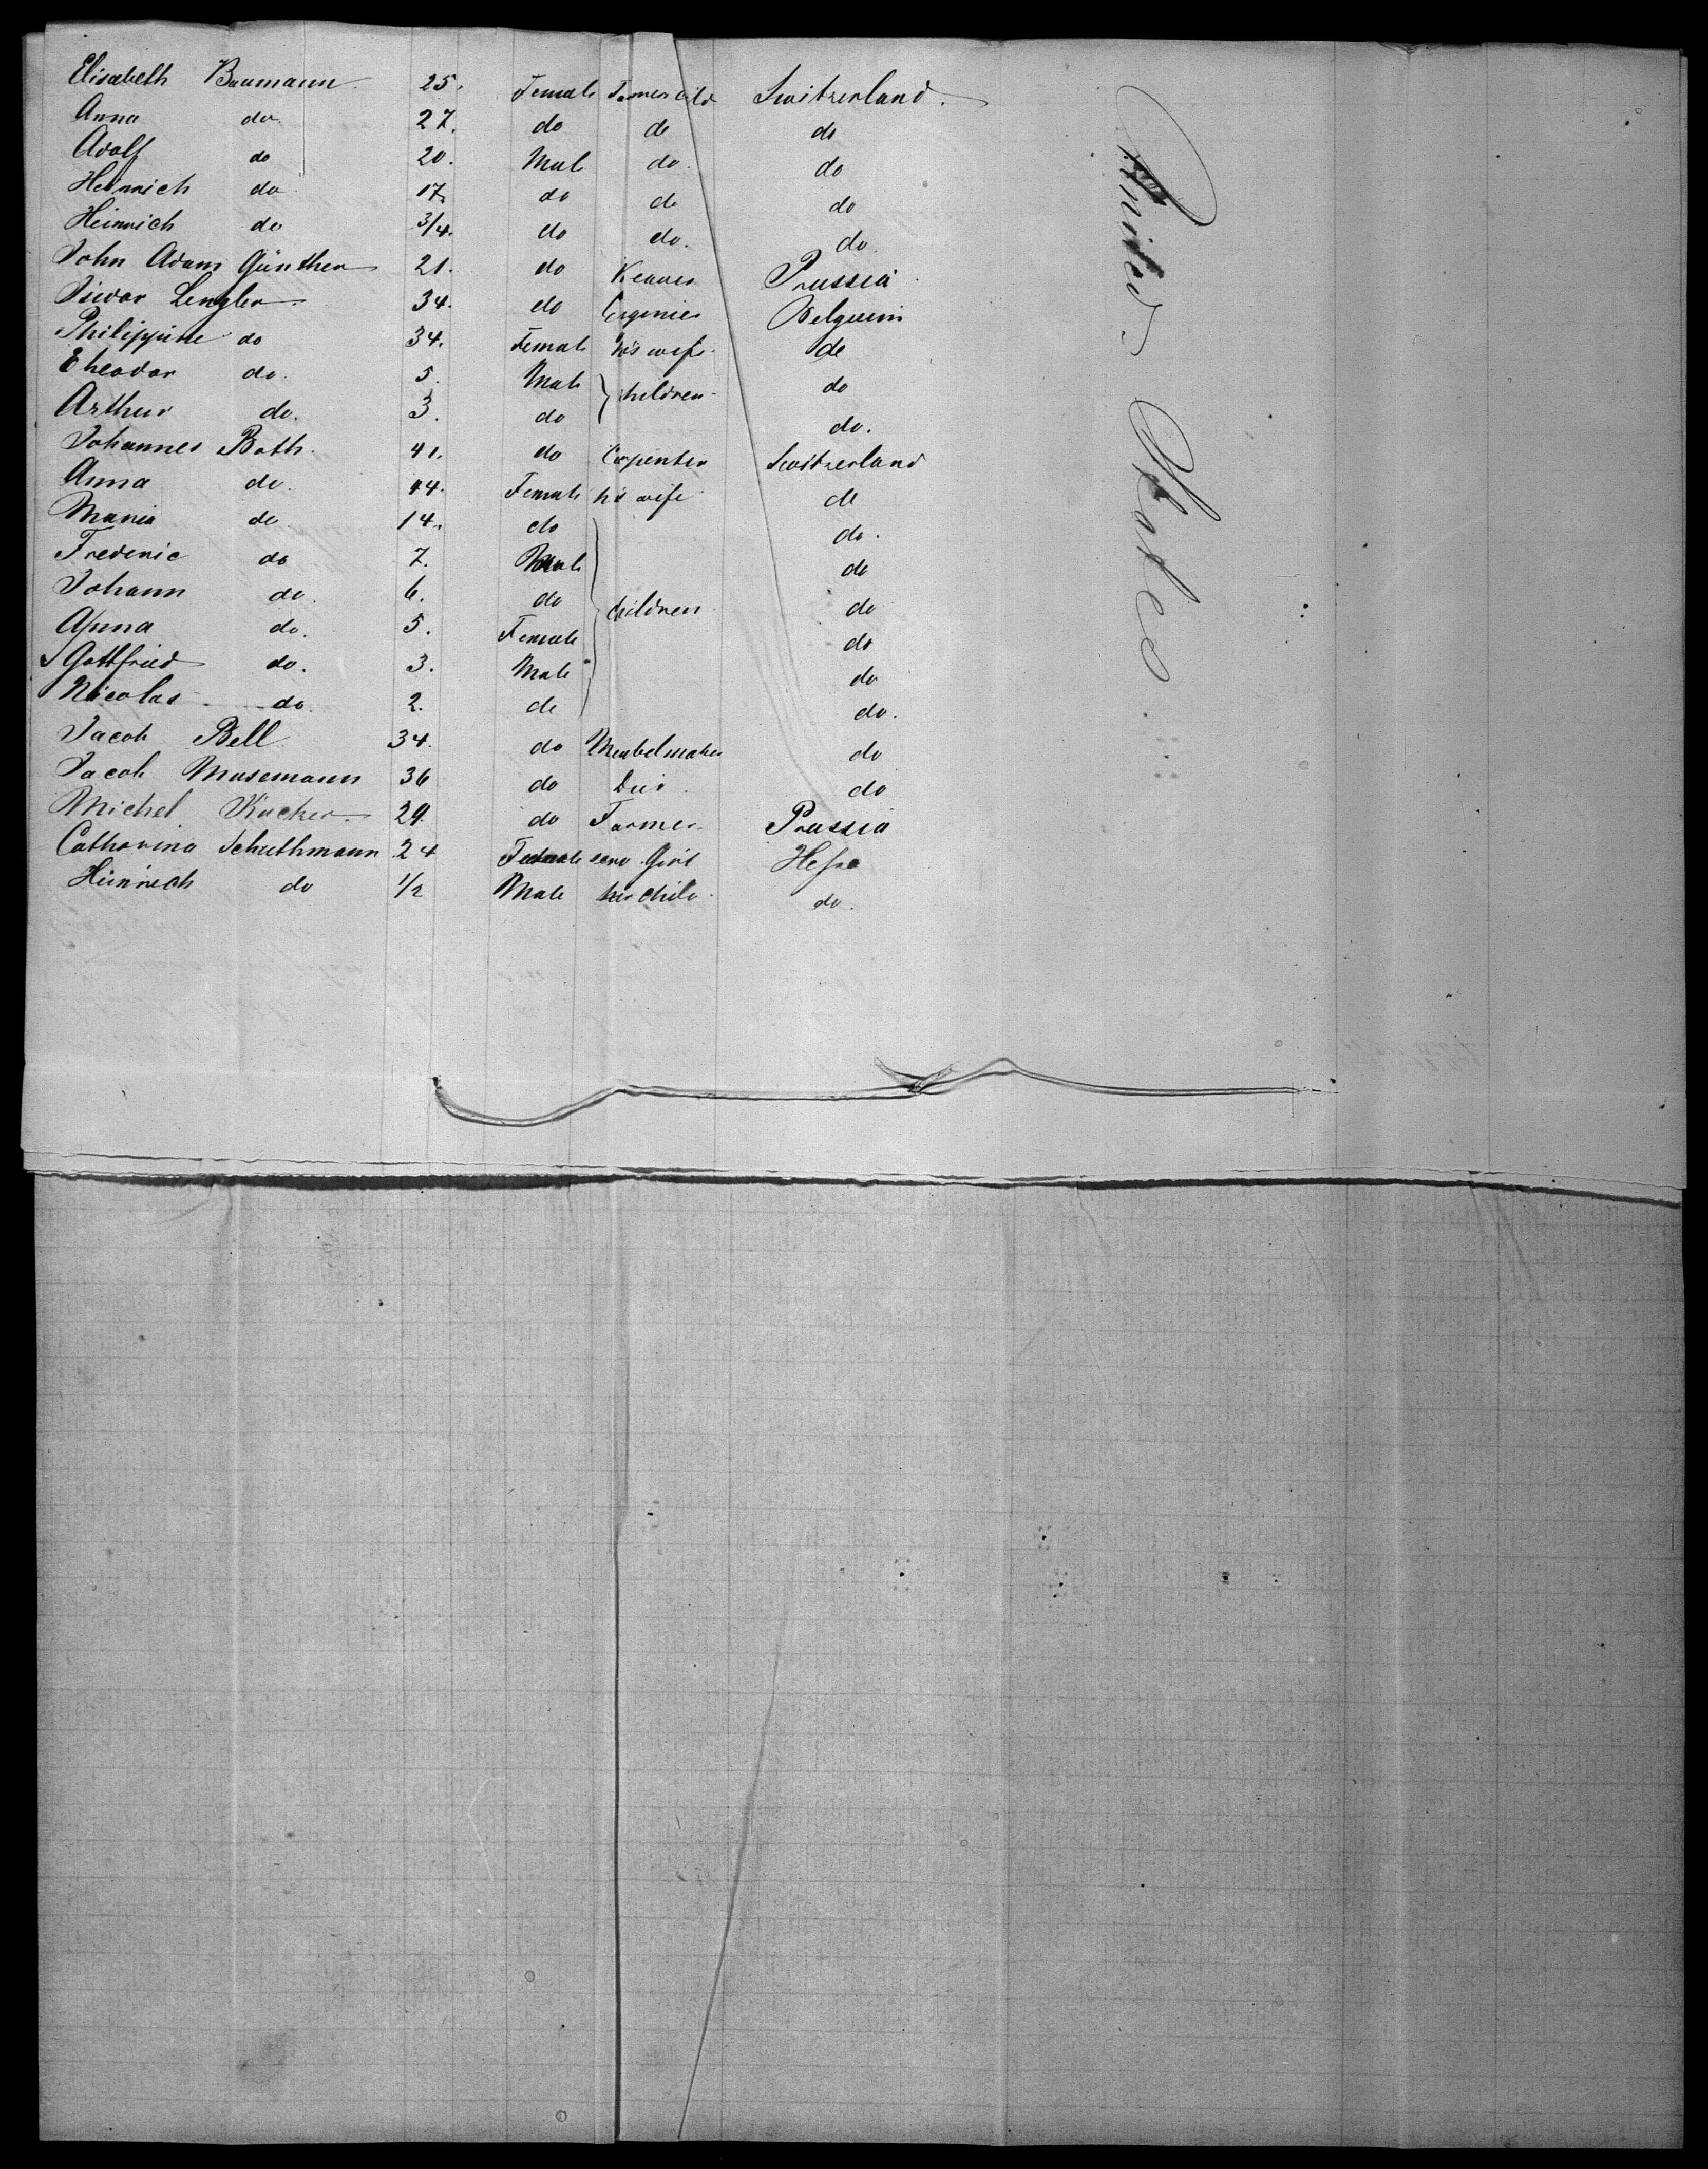 Elisabeth Baumann 25. Female Switzerland.
Anna do. 27. do do do
Adolf do 20. Male do. do
Heinrich do 17. do do do
Heinrich do 3/4. do do. do.
John Adam Günther 21. do Prussia
Isidor Lengler 34. do Belguim
Philippine do 34. Female his wife do
Theodor do. 5. Male children do
Arthur do. 3. do do.
Johannes Both. 41. do Carpenter Switzerland
Anna do. 44. Female his wife do
Maria do 14. do do.
Frederic do 7. Male do
Johann do. 6. do children do
Anna do. 5. Female do
Gottfried do. 3. Male do
Nicolas do. 2. do do.
Jacob Bell 34. do Meubelmaker do
Jacob Musemann 36 do do
Michel Kucker 29. do Farmer Prussia
Catharina Schuthmann 24 Female serv. Girl Hessa
Heinrich do 1/2 Male her child do.
United States